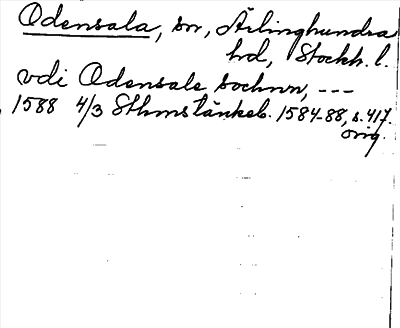 Odensala, sn, Ärlinghundra
hd, Stockh. l.
vdi Odensale sochnn, ---
1588 4/3 Sthmstänkeb. 1584-88, s. 417.
orig.